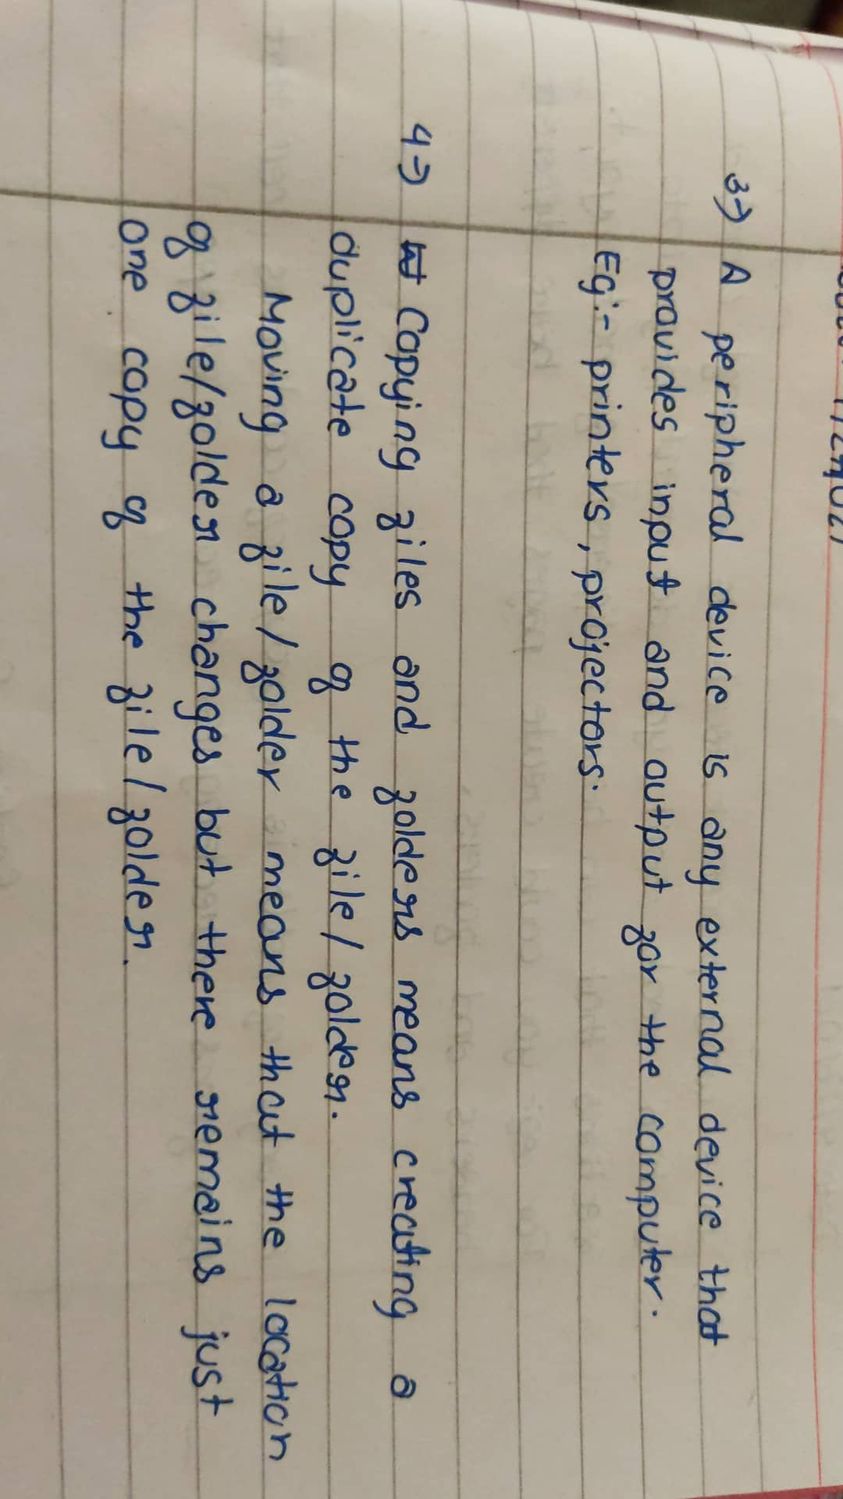 3→ A peripheral device is any external device that
provides input and output for the computer.
Eg:- printers, projectors.
4→ Copying files and folders means creating a
duplicate copy of the file/folder.
Moving a file/folder means that the location
of file/folder changes but there remains just
one copy of the file/folder.